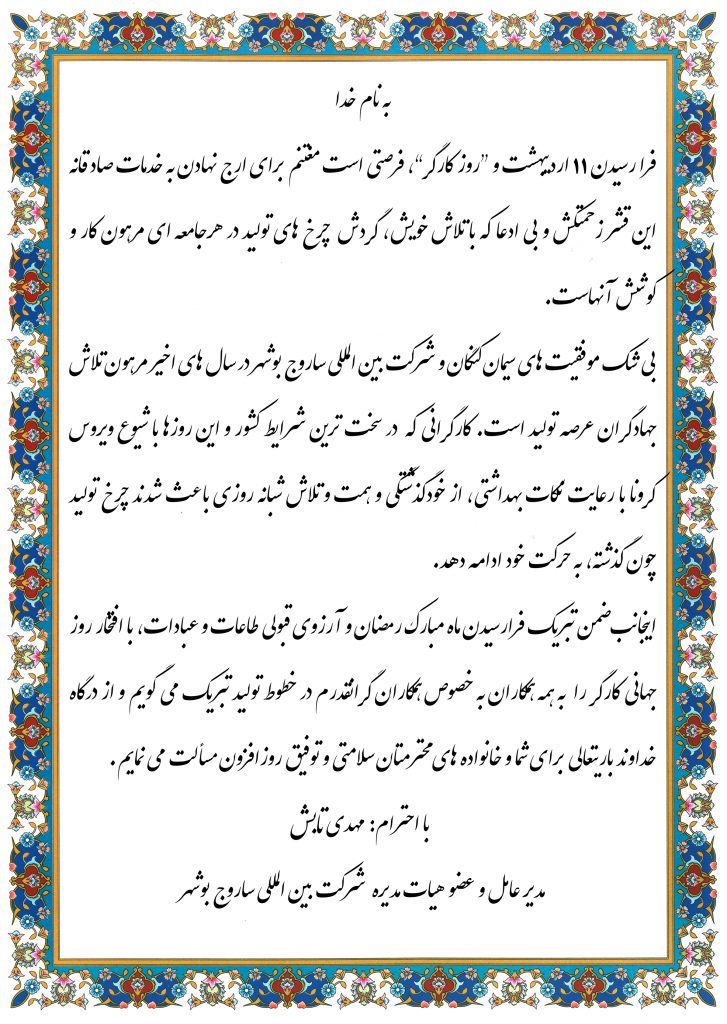 به نام خدا
فرا رسیدن ۱۱ اردیبهشت و "روز کارگر"، فرصتی است مغتنم برای ارج نهادن به خدمات صادقانه
این قشر زحمتکش و بی ادعا که با تلاش خویش، گردش چرخ های تولید در هر جامعه ای مرهون کار و
کوشش آنهاست.
بی شک موفقیت های سیمان کنگان و شرکت بین المللی ساروج بوشهر در سال های اخیر مرهون تلاش
جهادگران عرصه تولید است. کارگرانی که در سخت ترین شرایط کشور و این روزها با شیوع ویروس
کرونا با رعایت نکات بهداشتی، از خودگذشتگی و همت و تلاش شبانه روزی باعث شدند چرخ تولید
چون گذشته، به حرکت خود ادامه دهد.
اینجانب ضمن تبریک فرارسیدن ماه مبارک رمضان و آرزوی قبولی طاعات و عبادات، با افتخار روز
جهانی کارگر را به همه همکاران به خصوص همکاران گرانقدرم در خطوط تولید تبریک می گویم و از درگاه
خداوند باریتعالی برای شما و خانواده های محترمتان سلامتی و توفیق روز افزون مسألت می نمایم.
با احترام: مهدی تابش
مدیر عامل و عضو هیات مدیره شرکت بین المللی ساروج بوشهر